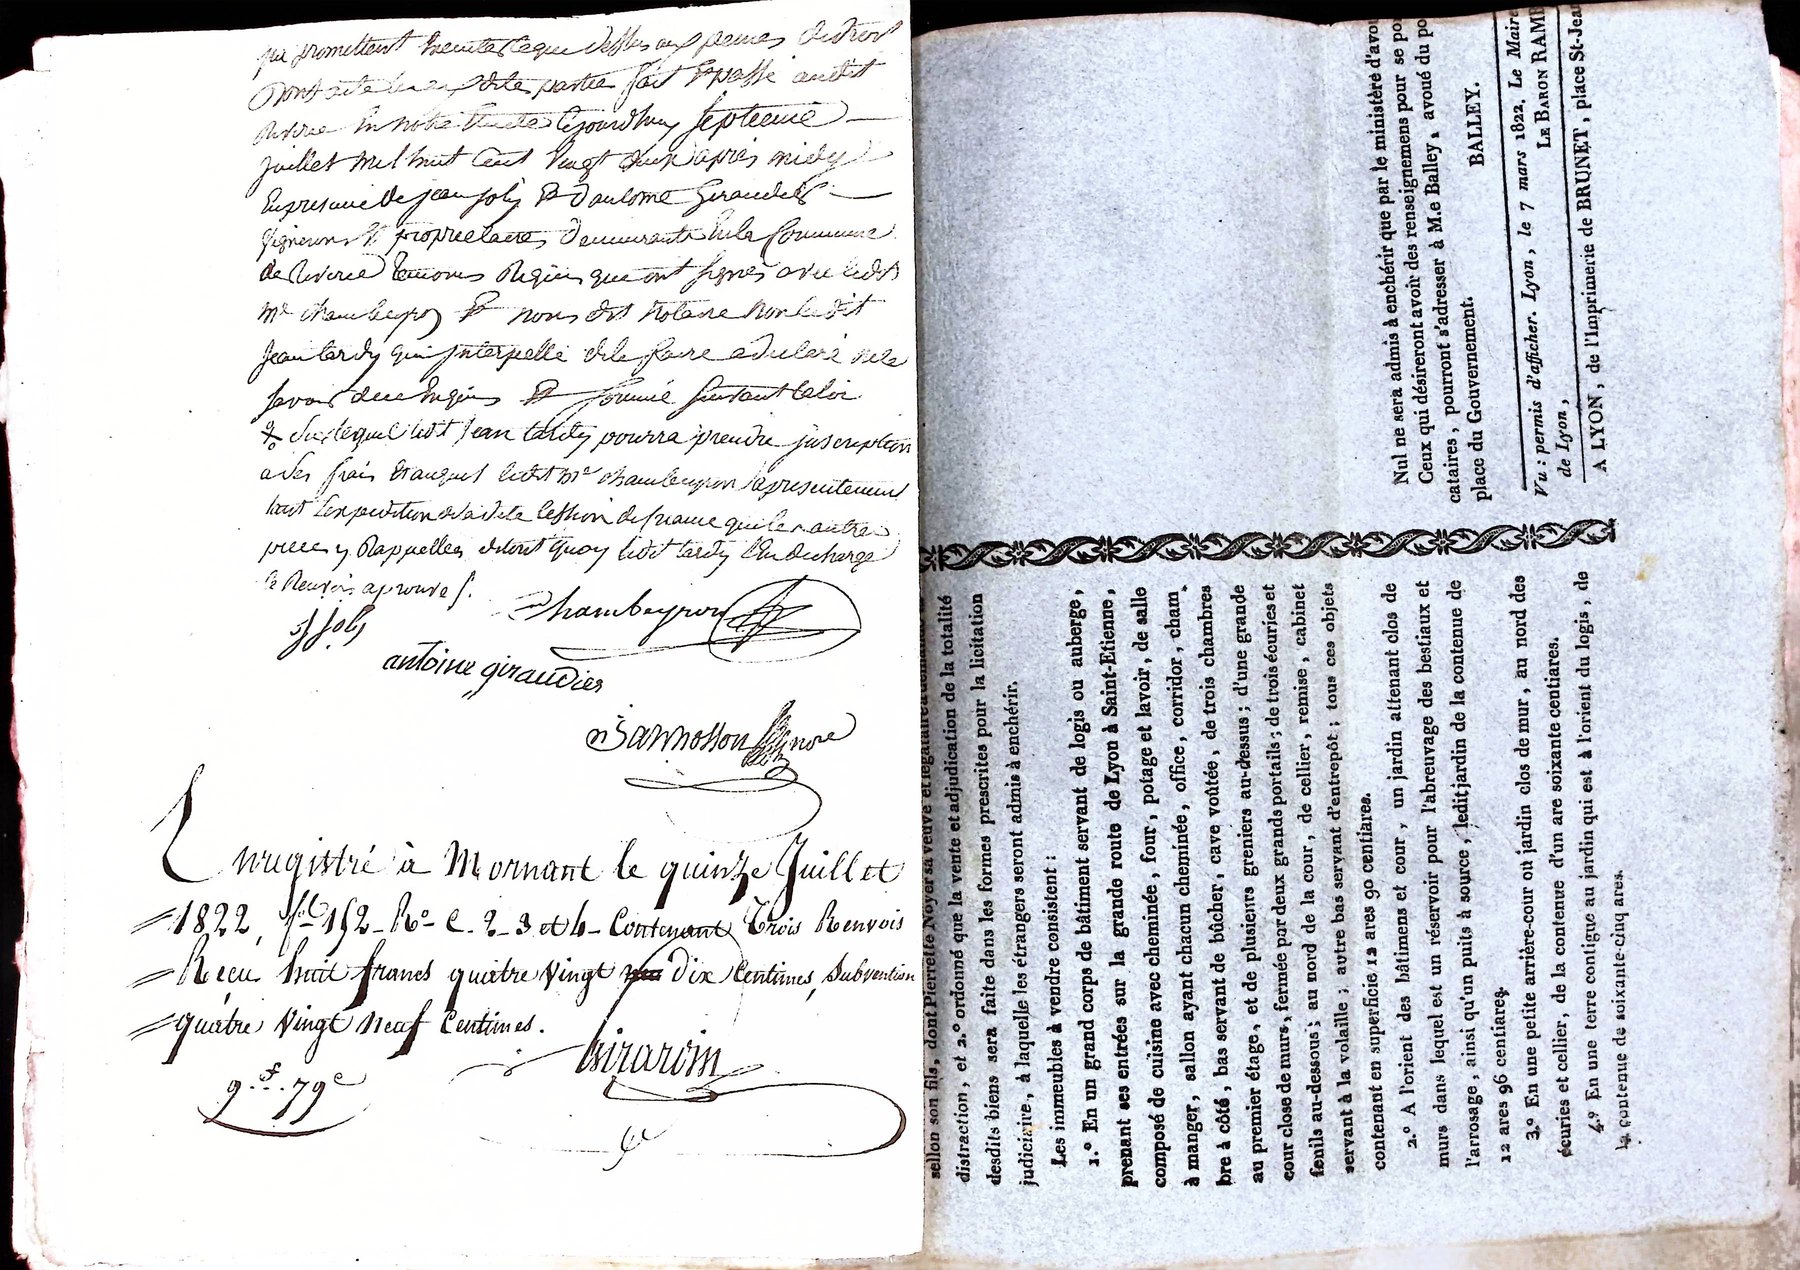 qui promettent                        aux peines de droit
Dont acte                 dite partie fait & passé audit
Riverie En notre Etude Cejourdhuy Septieme
juillet mil huit Cent Vingt deux après midy
En presence de jean joly & d'antoine Giraudier
Vignerons & proprietaires demeurants En la Commune
de Riverie temoins Requis que ont Signés avec ledit
Mr Chambeyron & nous dit Notaire Non ledit
Jean tardy qui interpellé de le faire a declaré ne le
Savoir de ce Enquis & Sommé Suivant la loi
                    ledit Jean tardy pourra prendre jnscription
a Ses frais Et auquel ledit Mr Chambeyron a presentement
                    Expedition de la dite Cession de              que les autres
pieces y Rappellées de tout quoy ledit tardy L'En decharge
le Renvois aprouvé /.
J Joly
Chambeyron
antoine giraudier
               nore
Enregistré à Mornant le quinze Juillet
1822, fol 152 Ro C. 2 3 et 4 Contenant Trois Renvois
Reçu huit francs quatre vingt dix Centimes, Subvention
quatre vingt neuf Centimes.
Girardin
9.f.79c
sellon son fils, dont Pierrette Noyer sa veuve
distraction, et 2.º ordonné que la vente et adjudication de la totalité
desdits biens sera faite dans les formes prescrites pour la licitation
judiciaire, à laquelle les étrangers seront admis à enchérir.
Les immeubles à vendre consistent :
1.º En un grand corps de bâtiment servant de logis ou auberge,
prenant ses entrées sur la grande route de Lyon à Saint-Etienne,
composé de cuisine avec cheminée, four, potage et lavoir, de salle
à manger, sallon ayant chacun cheminée, office, corridor, cham-
bre à côté, bas servant de bûcher, cave voûtée, de trois chambres
au premier étage, et de plusieurs greniers au-dessus ; d'une grande
cour close de murs, fermée par deux grands portails ; de trois écuries et
fenils au-dessous ; au nord de la cour, de cellier, remise, cabinet
servant à la volaille ; autre bas servant d'entrepôt ; tous ces objets
contenant en superficie 12 ares 90 centiares.
2.º A l'orient des bâtimens et cour, un jardin attenant clos de
murs dans lequel est un réservoir pour l'abreuvage des bestiaux et
l'arrosage, ainsi qu'un puits à source, ledit jardin de la contenue de
12 ares 96 centiares.
3.º En une petite arrière-cour ou jardin clos de mur, au nord des
écuries et cellier, de la contenue d'un are soixante centiares.
4.º En une terre contigue au jardin qui est à l'orient du logis, de
la contenue de soixante-cinq ares.
Nul ne sera admis à enchérir que par le ministère d'avou
Ceux qui désireront avoir des renseignemens pour se po
cataires, pourront s'adresser à M.e Balley, avoué du po
place du Gouvernement.
BALLEY.
Vu : permis d'afficher. Lyon, le 7 mars 1822. Le Maire
de Lyon,
LE BARON RAMB
A LYON, de l'Imprimerie de BRUNET, place St-Jean